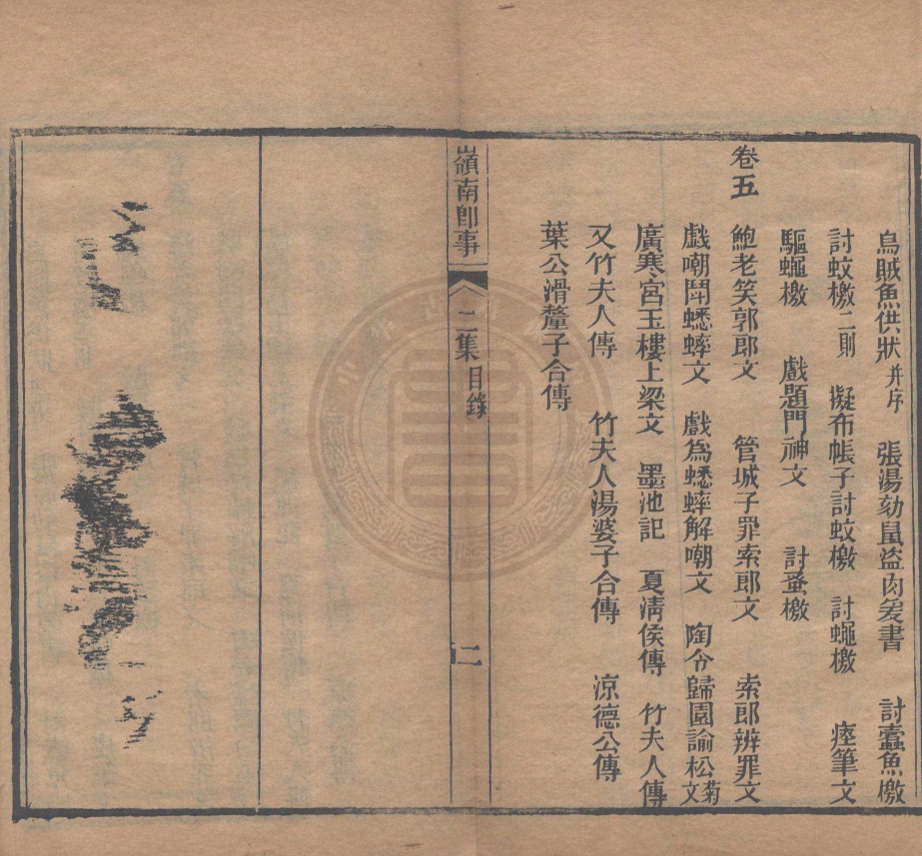 烏賊魚供狀并序 張湯劾鼠盜肉爰書 討蠹魚檄
討蚊檄二則 擬布帳子討蚊檄 討蠅檄 瘞筆文
驅蠅檄 戲題門神文 討蚤檄
卷五 鮑老笑郭郎文 管城子罪索郎文 索郎辨罪文
戲嘲鬥蟋蟀文 戲為蟋蟀解嘲文 陶令歸園諭松菊文
廣寒宮玉樓上梁文 墨池記 夏淸侯傳 竹夫人傳
又竹夫人傳 竹夫人湯婆子合傳 凉德公傳
葉公滑釐子合傳
嶺南卽事 二集目錄 二